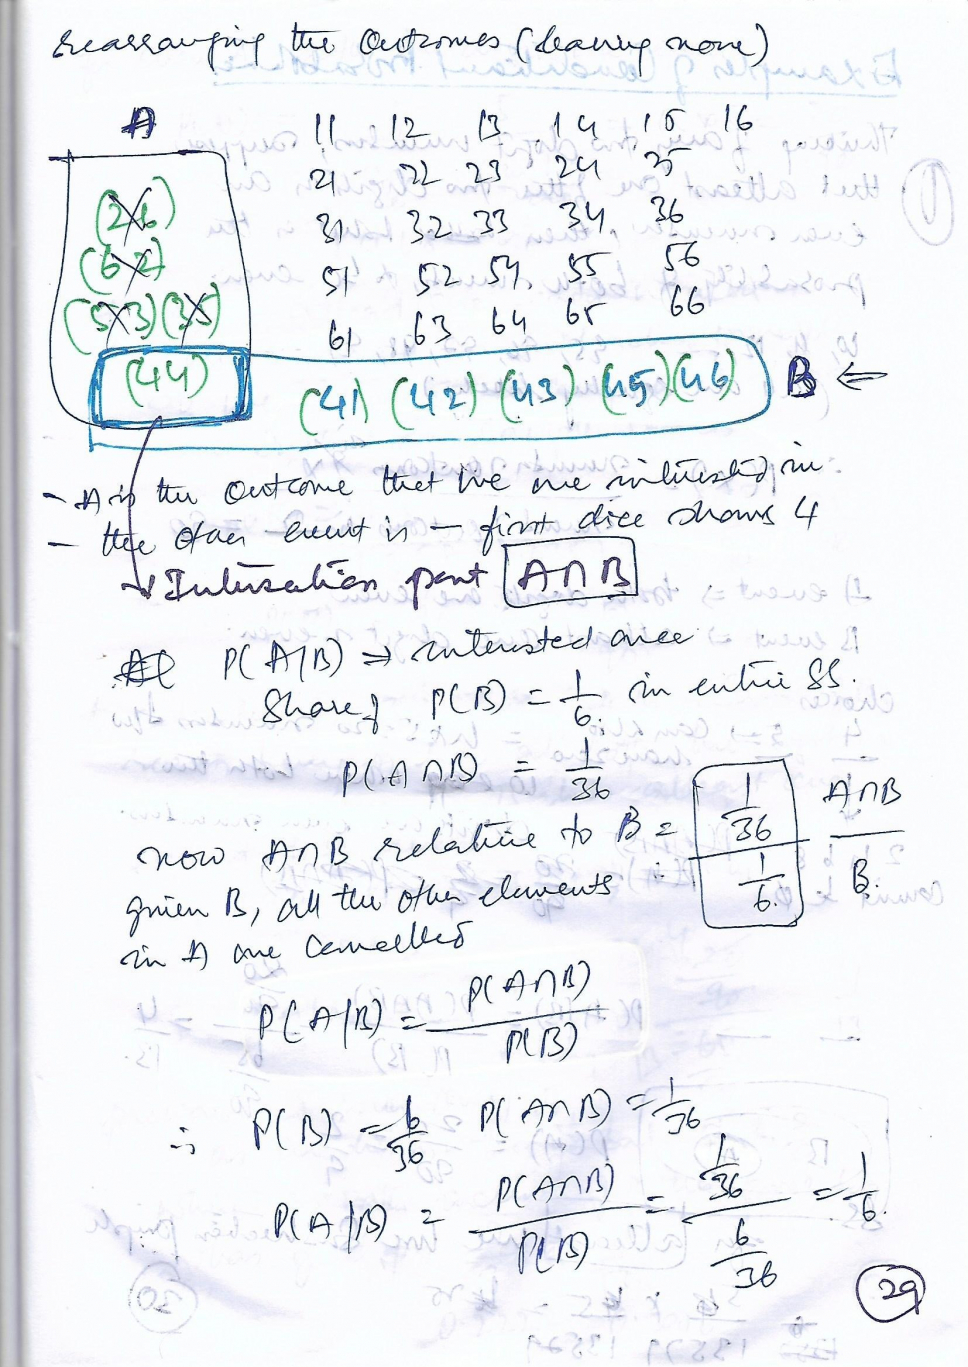 Rearranging the Outcomes (leaving none)
A 11 12 13 14 15 16
21 22 23 24 25
(26) 31 32 33 34 36
(62) 51 52 54 55 56
(53) (35) 61 63 64 65 66
(44) (41) (42) (43) (45) (46) B ←
- A is the Outcome that we are interested in
- the other event is - first dice shows 4
Intersection part A∩B
P(A/B) ⇒ interested once
Share of P(B) = 1/6 in entire SS.
P(A∩B) = 1/36
now A∩B relative to B = (1/36)/(1/6) A∩B/B
given B, all the other elements
in A are cancelled
P(A/B) = P(A∩B)/P(B)
∴ P(B) = 6/36 P(A∩B) = 1/36
P(A/B) = P(A∩B)/P(B) = (1/36)/(6/36) = 1/6
29